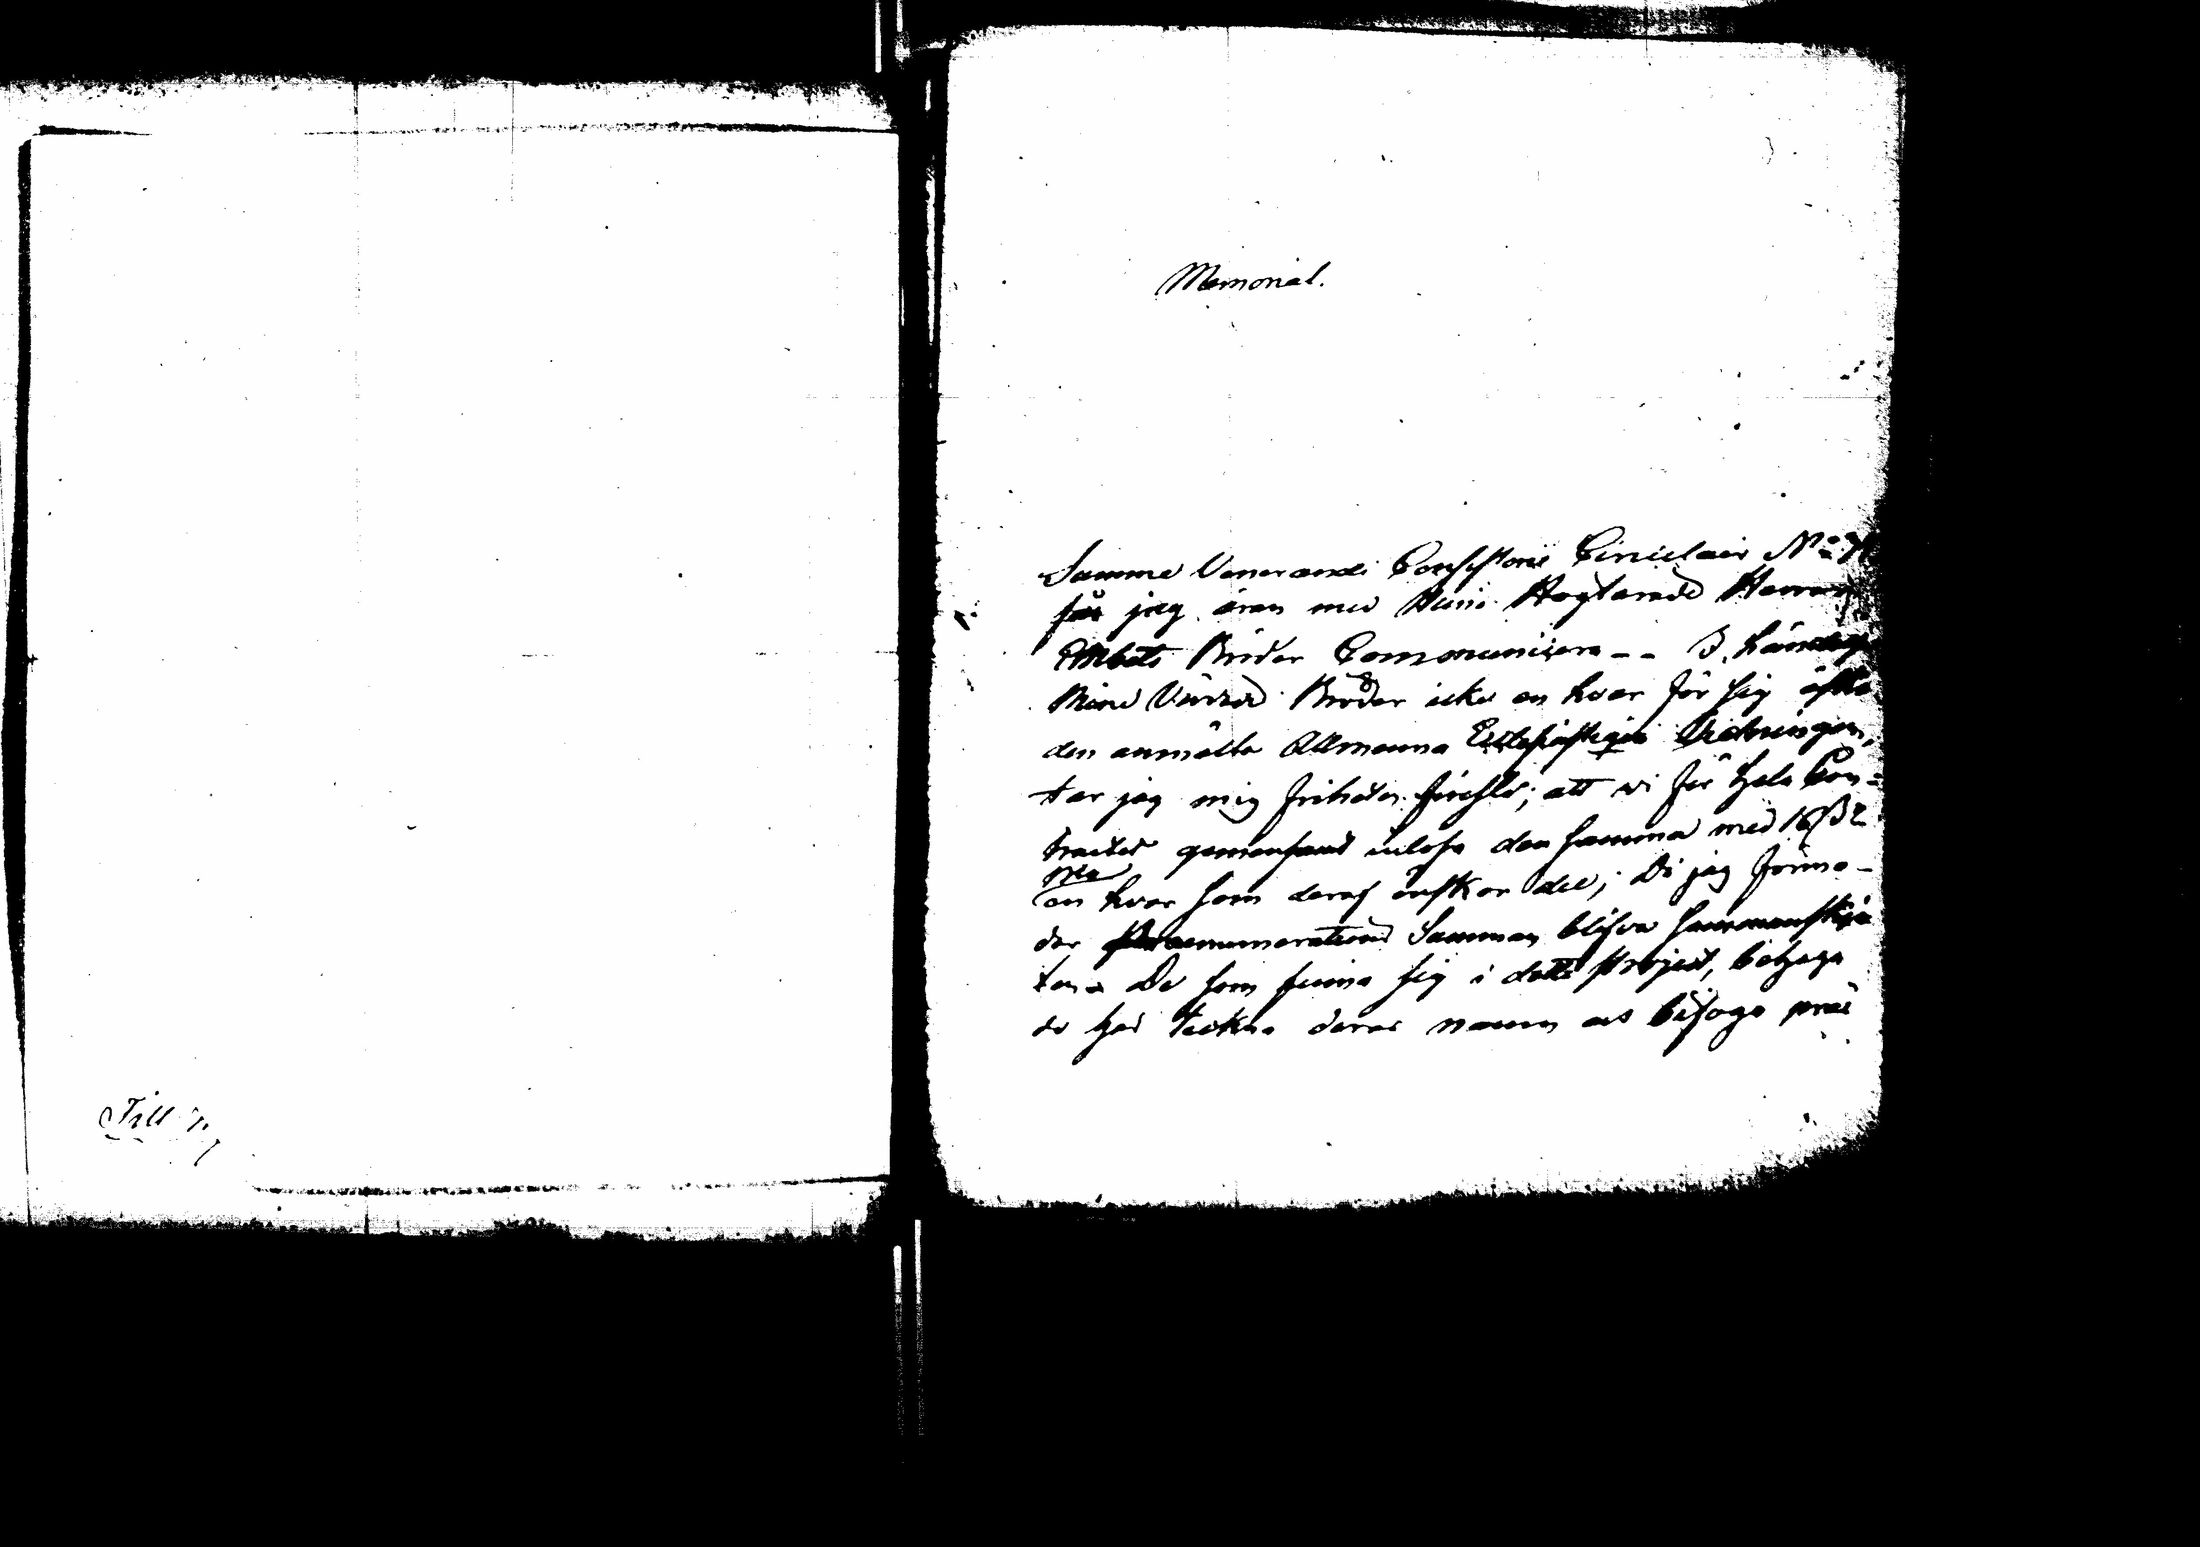 Till
Memorial.
Samma Venerandi Consistorii Circulair No
får jag äran med Mine Högtärade Herrar
Embets Bröder Communicera -- I händelse
Mine Värde Bröder icke en hvar för sig åstu
den anmälta Allmänna Ecclesiastique Tidningen,
tar jag mig friheten föreslå; att vi för hela Con-
tractet gemensamt inlösa den samma med 16 ß
en hvar som deraf önskar del; Då jag förmo-
dar Praenumerations Summan blifva sammanskju
ten. De som finna sig i detta project, behaga
de här teckna deras namn